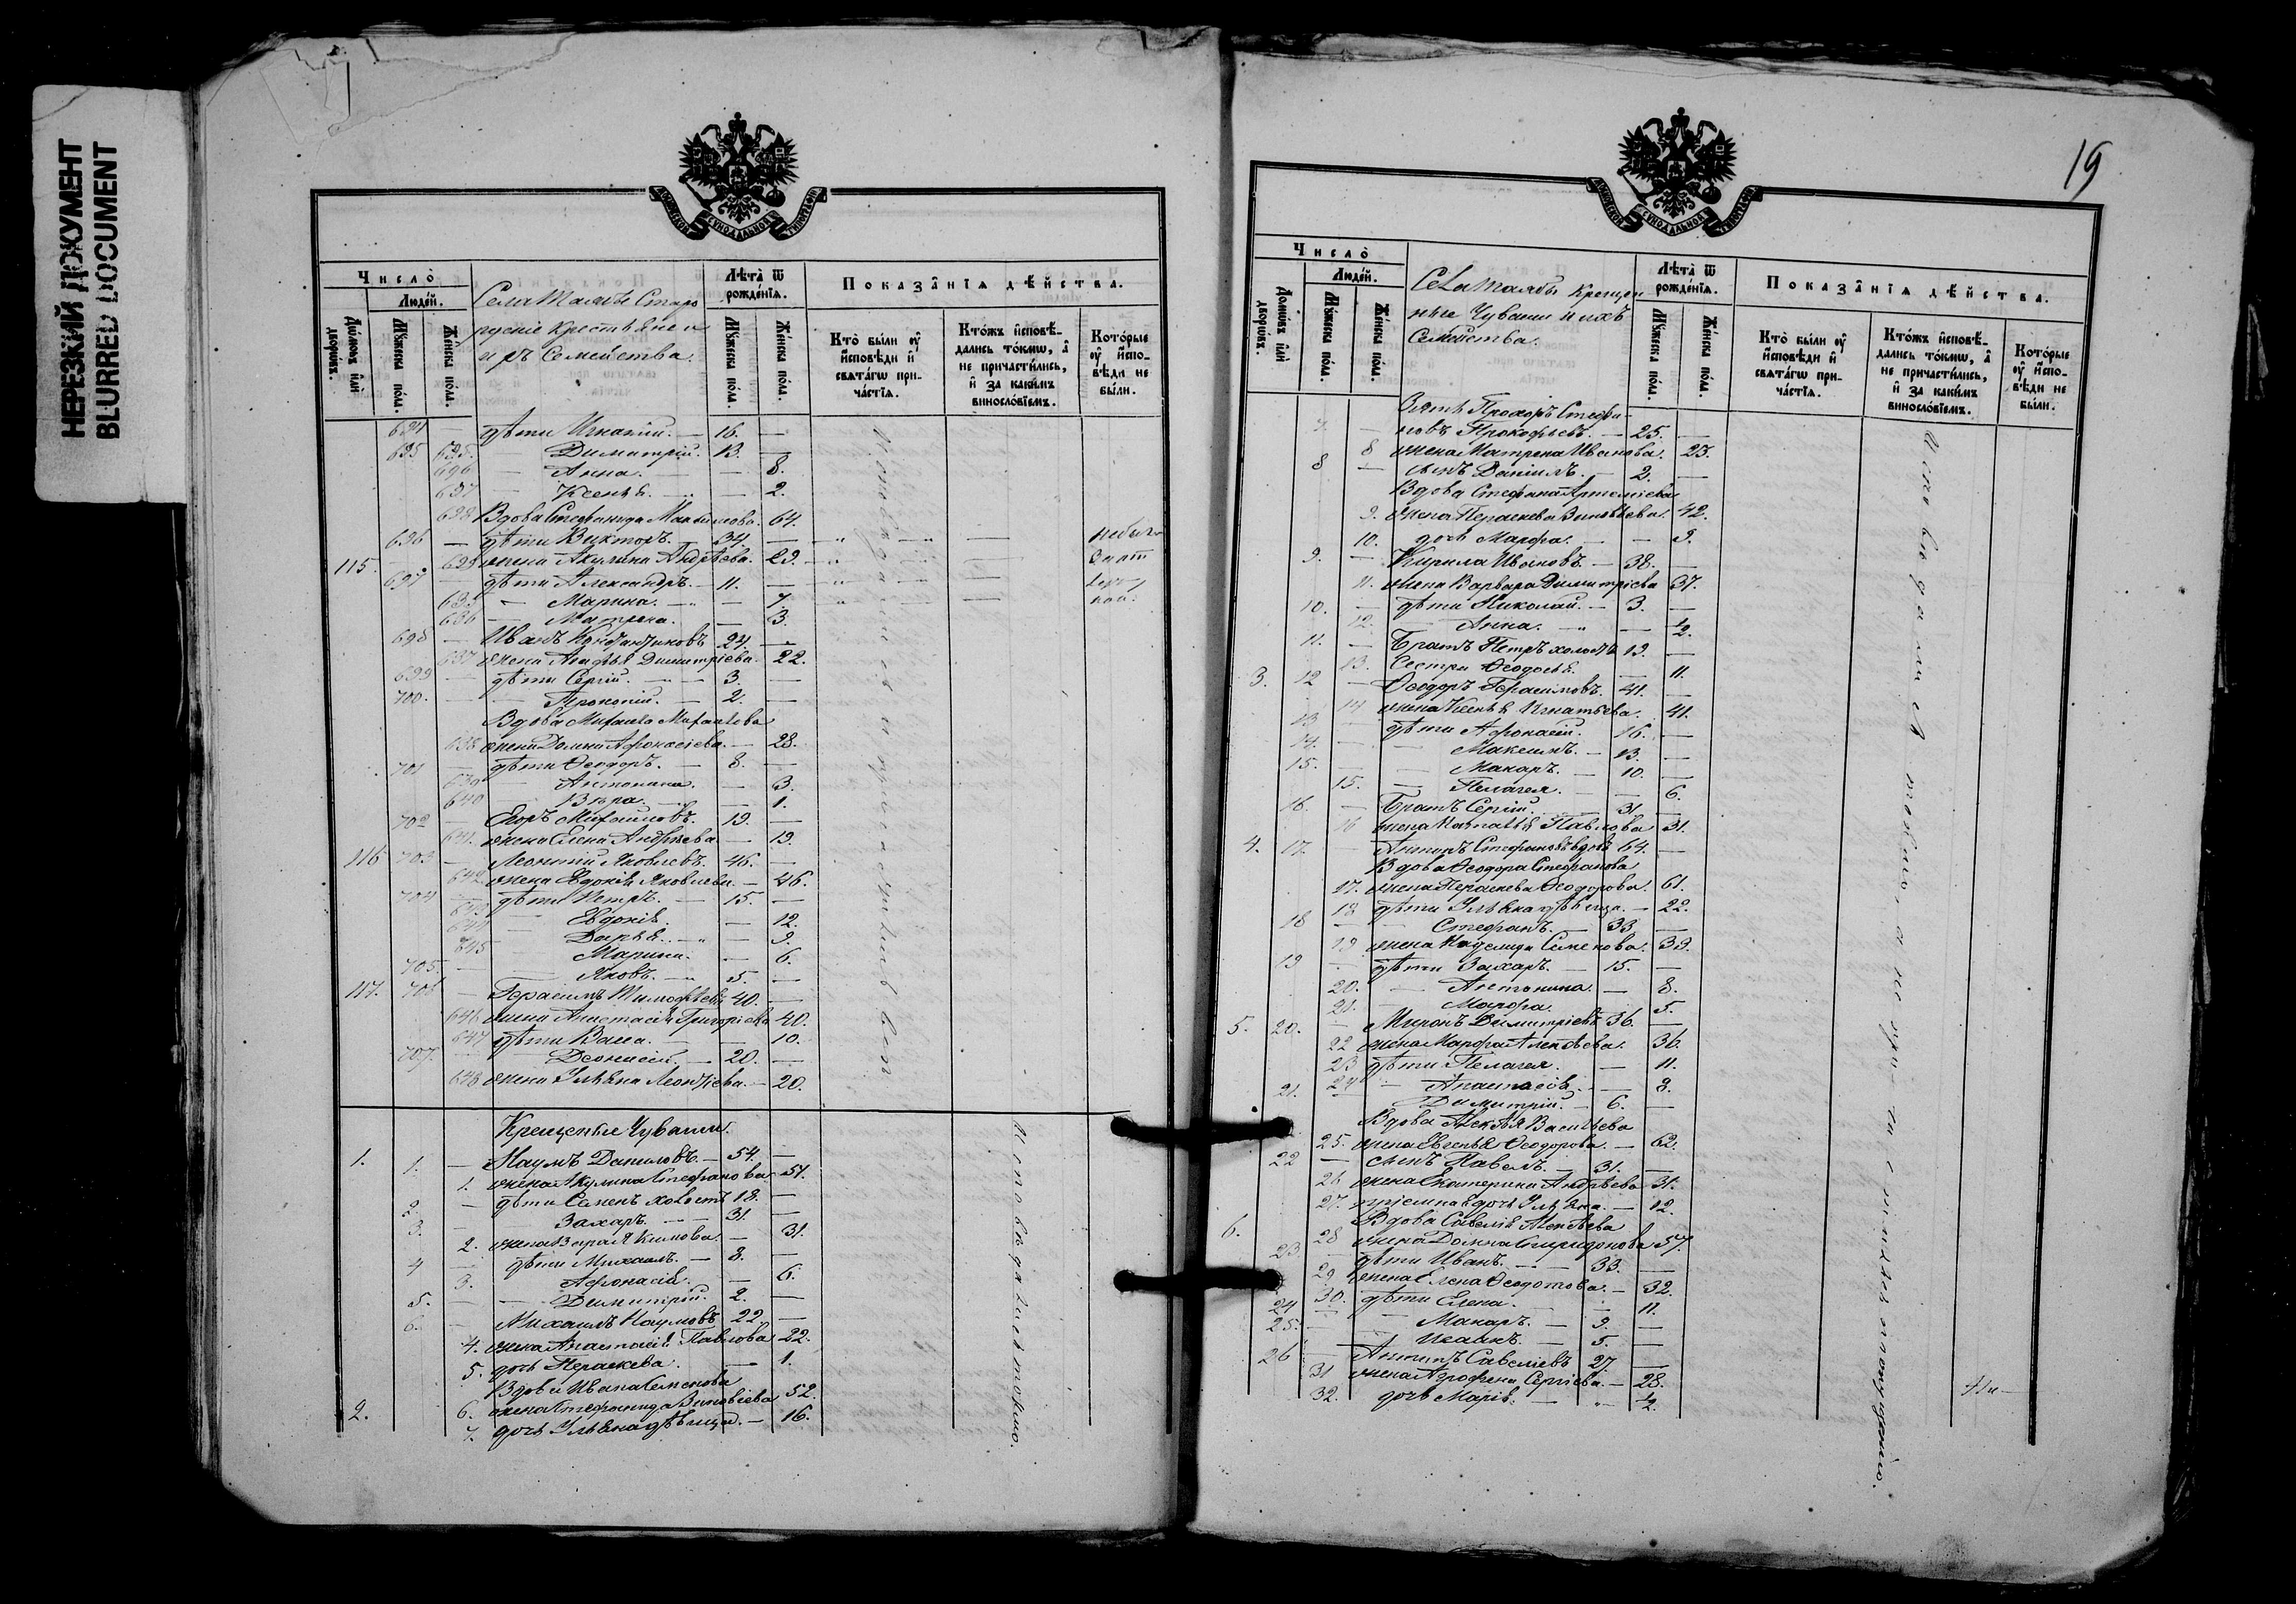 НЕРЕЗКИЙ ДОКУМЕНТ
BLURRED DOCUMENT
МОСКОВСКОЙ СѴНОДАЛЬНОЙ ТИПОГРАФІИ
Число̀
Людéй.
Домѡ́въ и҆лѝ дворѡ́въ.
Мꙋ́жеска по́лꙋ.
Же́нска по́лꙋ.
Села Таябы Старо
русскіе крестьяне и
ихъ Семейства.
Лѣта̀ ѿ рожде́нїѧ.
Мꙋ́жеска по́лꙋ.
Же́нска по́лꙋ.
Показа̑нїѧ дѣ́йства.
Кто̀ бы́ли ᲂу҆ и҆сповѣ́ди и҆ свѧта́гѡ прича́стїѧ.
Кто́жъ и҆сповѣ́дались то́кмѡ, а҆ не причасти́лись, и҆ за каки́мъ винословїемъ.
Кото́рые ᲂу҆ и҆сповѣ́ди не бы́ли.
694 — дѣти Игнатій. — 16. —
695 695. — Димитрій. 13. —
696 — Анна. — 8.
697 — Ксенья. — 2.
698 Вдова Стефанида Максимова. 64.
696 — дѣти Викторъ 34. —
115. 699 жена Акулина Андрѣева. 29.
697 — дѣти Александръ. — 11. —
635 — Марина. — 7.
636 — Матрона. — 3.
698 — Иванъ 24. —
637 жена Агафья Димитріева. 22.
699 — дѣти Сергій. — 3. —
700. — Прокопій. — 2. —
Вдова Михаила Михайлова
638 жена Домна Афонасіева. — 28.
701 — дѣти Ѳеодоръ. — 8. —
639 — Антонина. — 3.
640 — Вѣра. — 1.
702 — Егоръ Михайловъ. 19. —
641. жена Елена Андрѣева. — 19.
116 703 — Леонтій Яковлевъ. 46. —
642 жена Евдокія Яковлева. — 46.
704 — дѣти Петръ. — 15. —
643 — Евдокія — 12.
644 — Дарья. — 9.
645 — Марина. — 6.
705. — Яковъ. — 5. —
117. 706 — Герасимъ Тимофѣевъ 40. —
646 жена Анастасія Григоріева 40.
647 дѣти Васса. — 10.
707. — Деонисій. — 20. —
648 жена Ульяна Леонтіева. — 20.
небыли
Крещеные Чуваши.
1. 1. — Наумъ Даниловъ. — 54. —
1. жена Акулина Стефанова 51.
2. — дѣти Семенъ холостъ 18. —
3. — Захаръ. — 31. —
2. жена 31.
4 — дѣти Михаилъ. — 8. —
3. — Афонасія — 6.
5. — Димитрій. 2. —
6. — Михаилъ Наумовъ 22 —
4. жена Анастасія Павлова 22.
5. дочь Пераскева. — 1.
Вдова Ивана Семенова
2. 6. жена Стефонида Зиновіева 52.
7. дочь Ульяна дѣвица. — 16.
Исповѣдались токмо.
19
Число̀
Людéй.
Домѡ́въ и҆лѝ дворѡ́въ.
Мꙋ́жеска по́лꙋ.
Же́нска по́лꙋ.
Села Таябы Крещен
ные Чуваши и ихъ
Семейства.
Лѣта̀ ѿ рожде́нїѧ.
Мꙋ́жеска по́лꙋ.
Же́нска по́лꙋ.
Показа̑нїѧ дѣ́йства.
Кто̀ бы́ли ᲂу҆ и҆сповѣ́ди и҆ свѧта́гѡ прича́стїѧ.
Кто́жъ и҆сповѣ́дались то́кмѡ, а҆ не причасти́лись, и҆ за каки́мъ винословїемъ.
Кото́рые ᲂу҆ и҆сповѣ́ди не бы́ли.
Зять Прохоръ Стефа-
7. — новъ Прокофьевъ. — 25. —
8 жена Матрена Иванова. 23.
8 — сынъ Даніилъ. — 2. —
Вдова Стефана Артеміева
9. жена Пераскева Зиновіева. 42.
10. дочь Марфа. — 9.
9. — Кирила Ивановъ. — 38. —
11. жена Варвара Димитріева 37.
10. — дѣти Николай. — 3. —
12. — Анна. — 1/2.
11. — Братъ Петръ холостъ 19. —
13. Сестра Ѳеодосья. — 11.
3. 12 — Ѳеодоръ Герасимовъ. 41. —
14 жена Ксенья Игнатьева. 41.
13 — дѣти Афонасій. 16. —
14. — Максимъ. — 13. —
15. — Макаръ. — 10. —
15. — Пелагея. — 6.
16. — Братъ Сергій. — 31. —
16 жена Наталья Павлова 31.
4. 17. — Антипъ Стефановъ вдовъ 64. —
Вдова Ѳеодора Стефанова
17. жена Пераскева Ѳеодорова. 61.
18 дѣти Ульяна дѣвица. — 22.
18 — Стефанъ. — 33 —
19 жена Надежда Семенова. 39.
19 — дѣти Захаръ. — 15. —
20. — Антонина. — 8.
21. — Марфа. — 5.
5. 20. — Миронъ Димитріевъ 36. —
22 жена Марфа Алексѣева. 36.
23 дѣти Пелагея. — 11.
24 — Анастасія. — 8.
21. — Димитрій. — 6. —
Вдова Алексѣя Васильева
25. жена Евгенья Ѳеодорова. — 62.
22 — сынъ Павелъ. — 31. —
26 жена Екатерина Андрѣева 31.
27. пріемная дочь Ульяна. — 12.
6. Вдова Савелія Алексѣева
28 жена Домна Спиридонова 57.
23. — дѣти Иванъ. — 33. —
29 жена Елена Ѳедотова. — 32.
30. дѣти Елена. — 11.
24 — Макаръ. — 9. —
25. — Исаакъ. — 5. —
26 — Антипъ Савеліевъ 27. —
31 жена Агрофена Сергіева. — 28.
32. дочь Марія. — 1/2.
Исповѣдались токмо